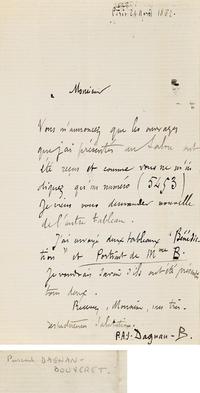 Paris 24 Avril 1882.
Monsieur
Vous m'annoncez que les ouvrages
que j'ai présentés au Salon ont
été reçus et comme vous ne m'in
diquez qu'un numéro (5253)
Je viens vous demander nouvelle
de l'autre tableau.
J'ai envoyé deux tableaux "Bénédic
tion" et Portrait de Mme B.
Je voudrais savoir s'ils ont été présentés
tous deux.
Recevez, Monsieur, mes très
salutations
P.A.J. Dagnan-B.
DAGNAN-
BOUVERET.